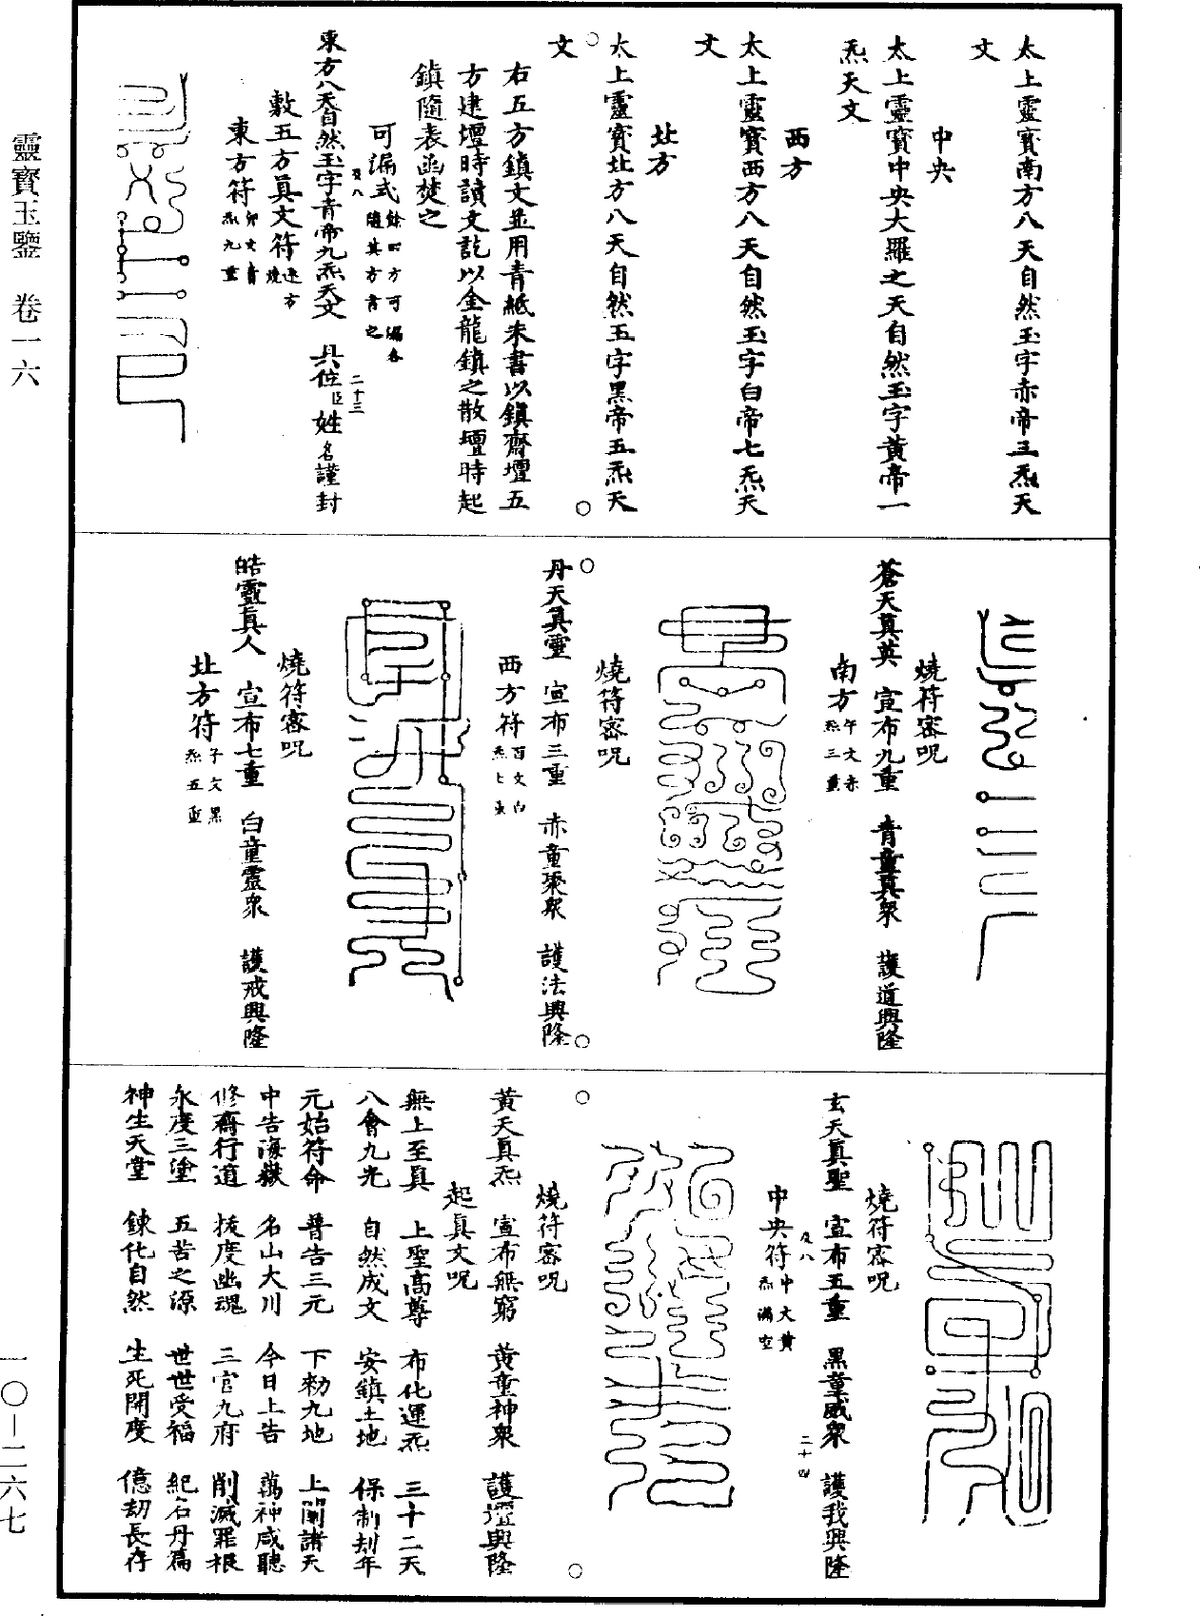 太上靈寶南方八天自然玉字赤帝三炁天
文
中央
太上靈寶中央大羅之天自然玉字黃帝一
炁天文
西方
太上靈寶西方八天自然玉字白帝七炁天
文
北方
太上靈寶北方八天自然玉字黑帝五炁天
文
右五方鎮文並用青紙朱書以鎮齋壇五
方建壇時讀文訖以金龍鎮之散壇時起
鎮隨表函焚之
可漏式餘四方可漏各隨其方書之
東方八天自然玉字青帝九炁天文 具位臣姓名謹封
敷五方真文符逐方燒
東方符卯文青炁九重
燒符密呪
蒼天真英 宣布九重 青童真眾 護道興隆
南方午文赤炁三重
燒符密呪
丹天真靈 宣布三重 赤童眾 護法興隆
西方符酉文白炁七重
燒符密呪
皓靈真人 宣布七重 白童靈眾 護戒興隆
北方符子文黑炁五重
燒符密呪
玄天真聖 宣布五重 黑童威眾 護我興隆
中央符中文黃炁滿空
燒符密呪
黃天真炁 宣布無窮 黃童神眾 護壇興隆
起真文呪
無上至真 上聖高尊 布化運炁 三十二天
八會九光 自然成文 安鎮土地 保制劫年
元始符命 普告三元 下勑九地 上聞諸天
中告海嶽 名山大川 今日上告 萬神咸聽
修齋行道 拔度幽魂 三官九府 削滅罪根
永度三塗 五苦之源 世世受福 紀名丹篇
神生天堂 鍊化自然 生死開度 億劫長存
二十三
二十四
靈寶玉鑒 卷一六
一〇—二六七